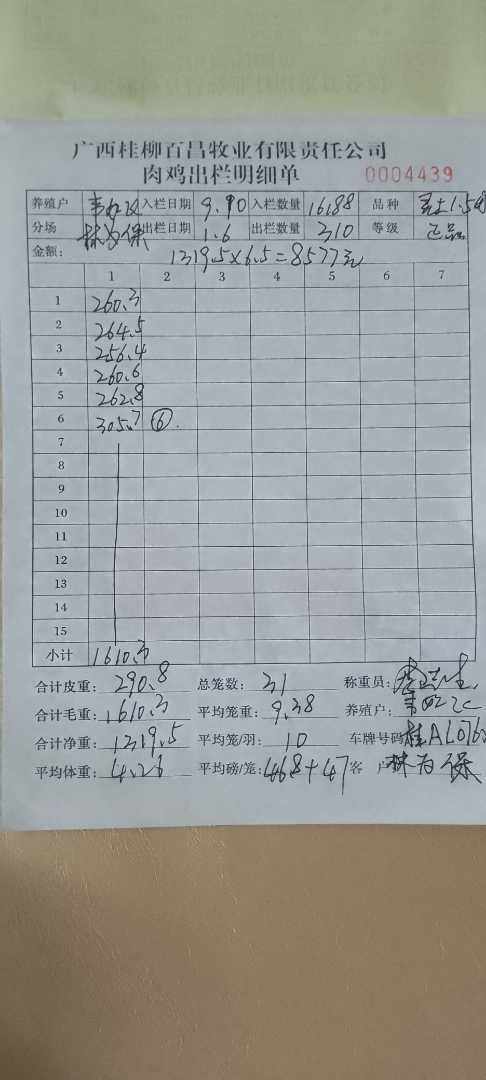 广西桂柳百昌牧业有限责任公司
肉鸡出栏明细单 0004439
养殖户 入栏日期 9.10 入栏数量 16188 品种
分场 林为保 出栏日期 1.6 出栏数量 310 等级 正品
金额: 1319.5×6.5=8577元
1 2 3 4 5 6 7
1 260.3
2 264.5
3 256.4
4 260.6
5 262.8
6 305.7 ⑥
7
8
9
10
11
12
13
14
15
小计 1610.3
合计皮重: 290.8 总笼数: 31 称重员:
合计毛重: 1610.3 平均笼重: 9.38 养殖户:
合计净重: 1319.5 平均笼/羽: 10 车牌号码 桂AL076
平均体重: 4.26 平均磅/笼: 468+47 客户 林为保